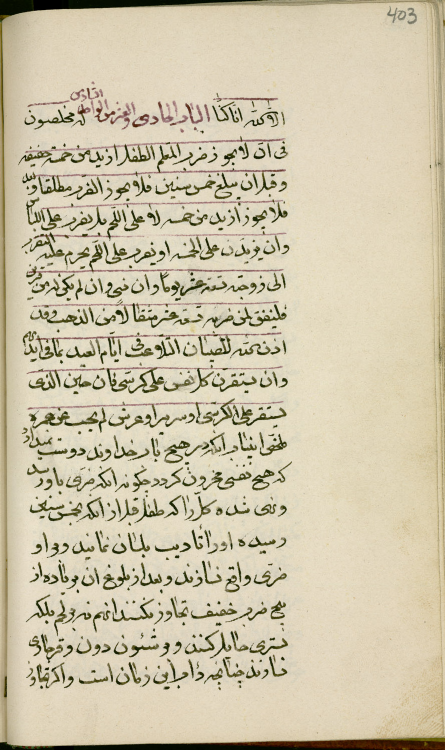 انا کنا الباب الحادی والعشر من الواحد السادس له مخلصون
فی ان لا یجوز ضرب المعلم الطفل ازید من خمسة خفیفة
و قبل ان یبلغ خمس سنین فلا یجوز الضرب مطلقا و بعد
فلا یجوز ازید من خمسه لا علی اللحم بل یضرب علی اللباس
وان یزیدن علی الخمسة او یضرب علی اللحم یحرم علیه التقرب
الی زوجته تسعة عشر یوما وان نسی وان لم یکن له من قرین
فلینفق لمن ضربه تسعة عشر مثقالا من الذهب وقد
اذن للصبیان التلاعب فی ایام العید بما فی ایدیهم
وان یستقرن کل نفس علی کرسی فان حین الذی
یستقر علی الکرسی او سریر او عرش لم یحسب من عمره
ملخص اینباب آنکه در هیچ باب خداوند دوست نمیدارد
که هیچ نفسی محزون گردد چگونه آنکه ضری باو رسد
و نهی شده کل را که طفل قبل از آنکه بخمس سنین
رسیده او را تادیب بلسان نمایند و بر او
حزنی واقع نسازند و بعد از بلوغ آن زیاده از
پنج ضرب خفیف تجاوز نکنند آنهم نه بر لحم بلکه
بستری حایل کنند و بر شئون دون وقر جاری
نسازند چنانچه داب این زمان است و اگر تجاوز
403